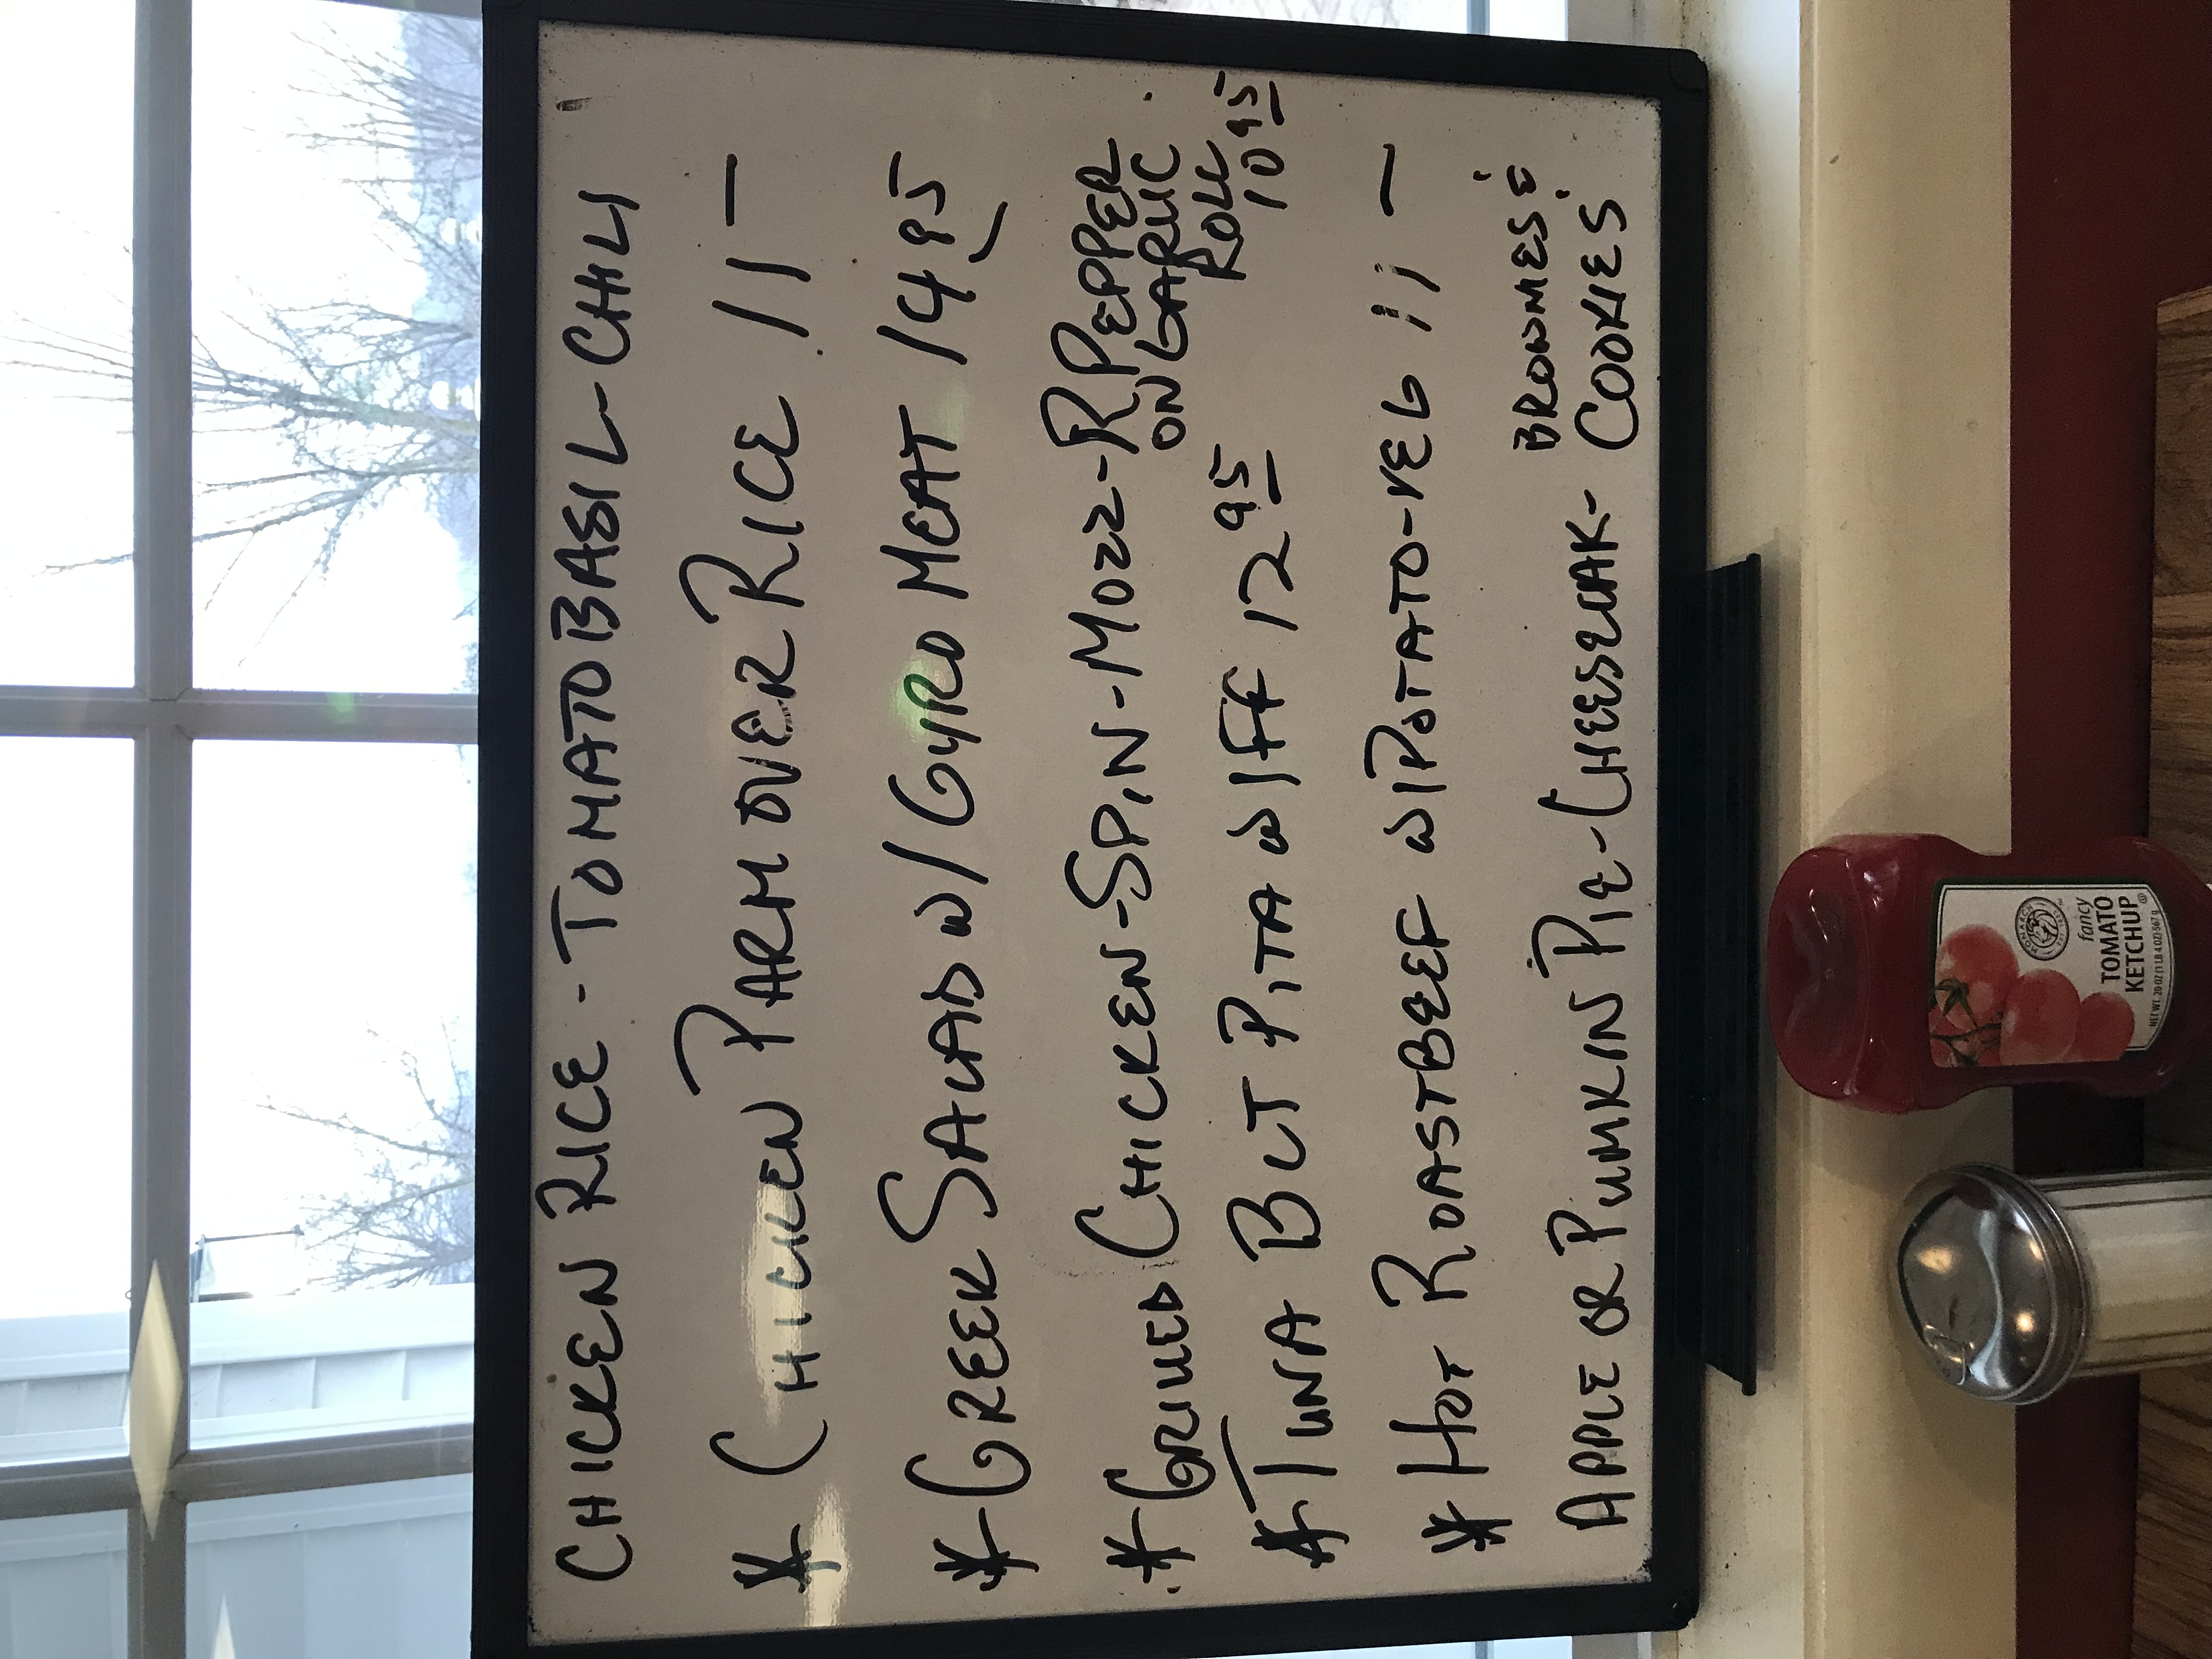 CHICKEN RICE - TOMATO BASIL - CHILI
* CHICKEN PARM OVER RICE 11 —
* GREEK SALAD W/ GYRO MEAT 14 95
* GRILLED CHICKEN - SPIN - MOZZ - R PEPPER
ON GARLIC
ROLL
10 95
* TUNA BLT PITA W/FF 12 95
* HOT ROASTBEEF W/POTATO-VEG 11 —
BROWNIES &
APPLE OR PUMKIN PIE - CHEESCAK - COOKIES
MONARCH
fancy
TOMATO
KETCHUP
NET WT. 20 OZ (1 LB 4 OZ) 567 g